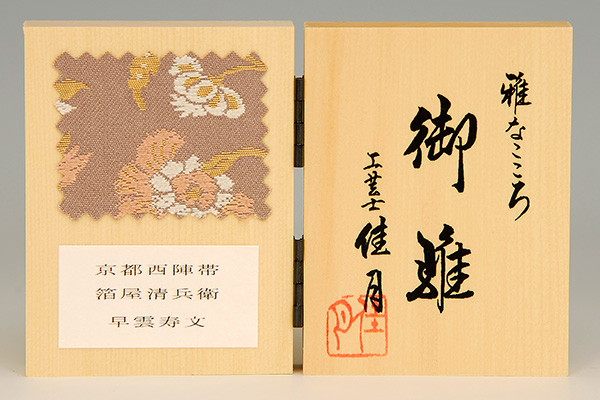 京都西陣帯
箔屋清兵衛
早雲寿文
雅なこころ
御雛
工芸士 佳月
佳月